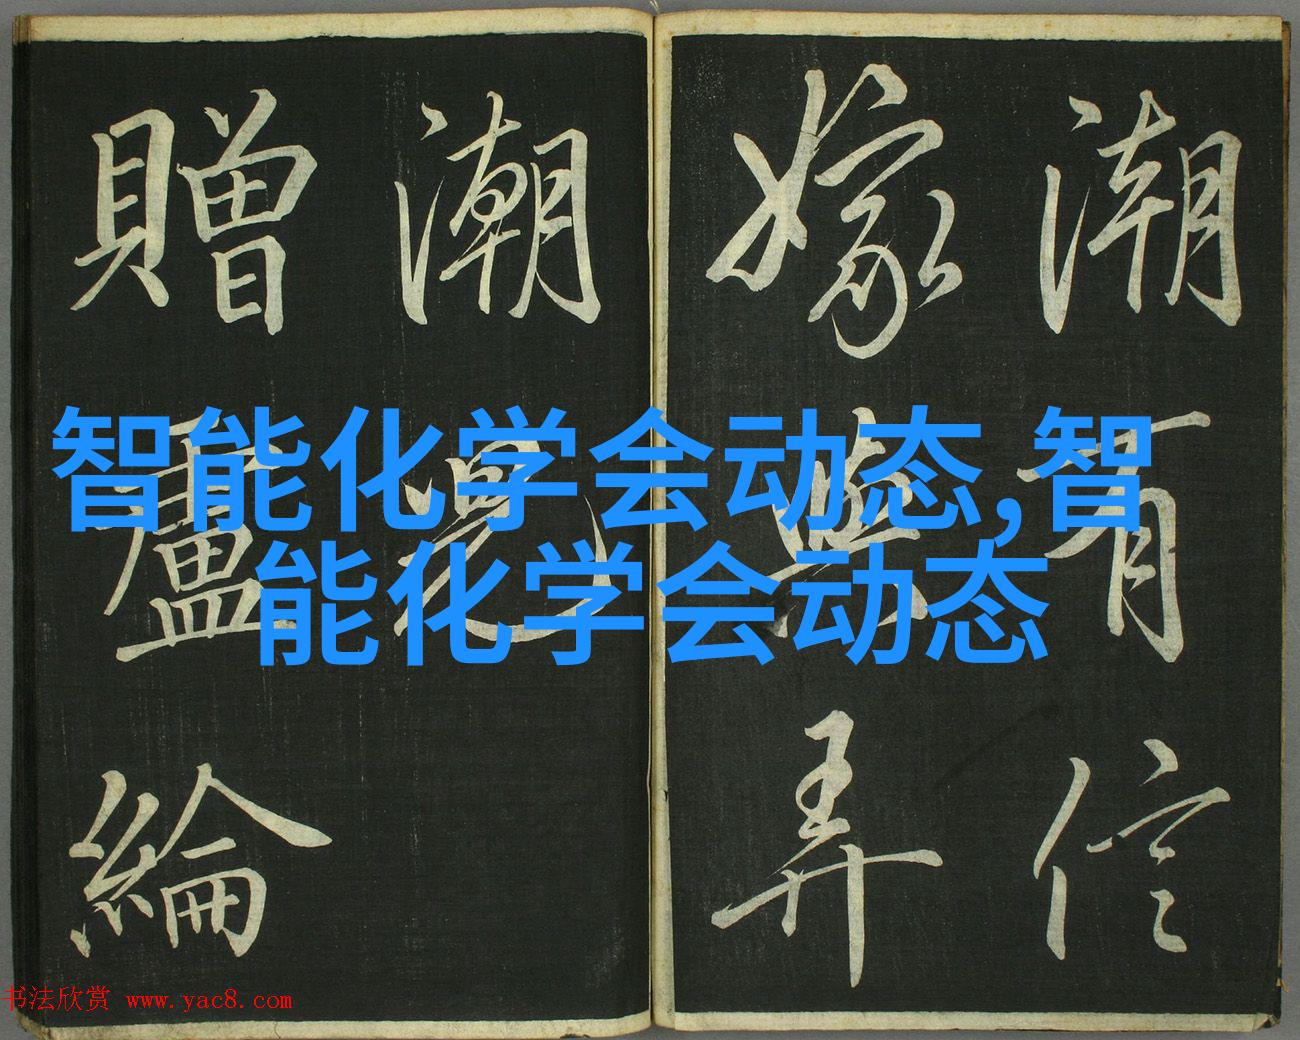 潮有信
嫁與弄
潮兒
贈盧綸
智能化学会动态,智
能化学会动态
书法欣赏 www.yac8.com